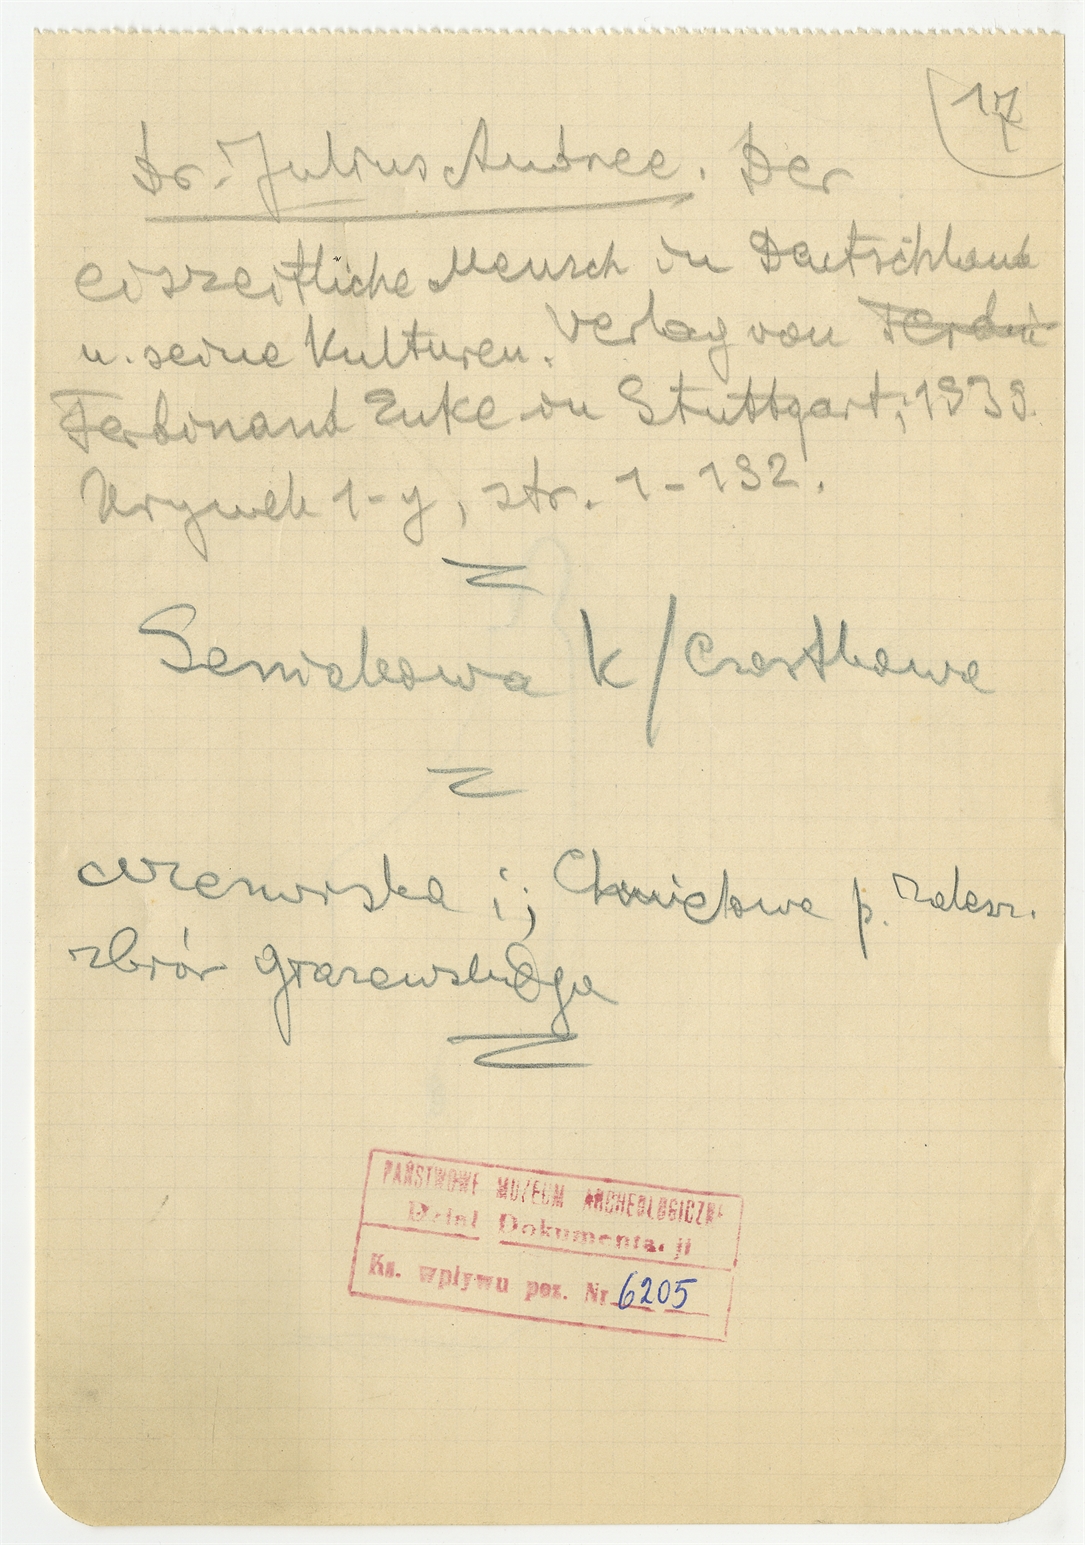 17
Dr. Julius Andree. Der
eiszeitliche Mensch in Deutschland
u. seine Kulturen. Verlag von Ferdni
Ferdinand Enke in Stuttgart, 1939.
str. 1-192.
Semiakowa k/Czostkowa
i; Chmielowa p. Zalesz.
zbiór
PAŃSTWOWE MUZEUM ARCHEOLOGICZNE
Dział Dokumentacji
Ks. wpływu poz. Nr 6205